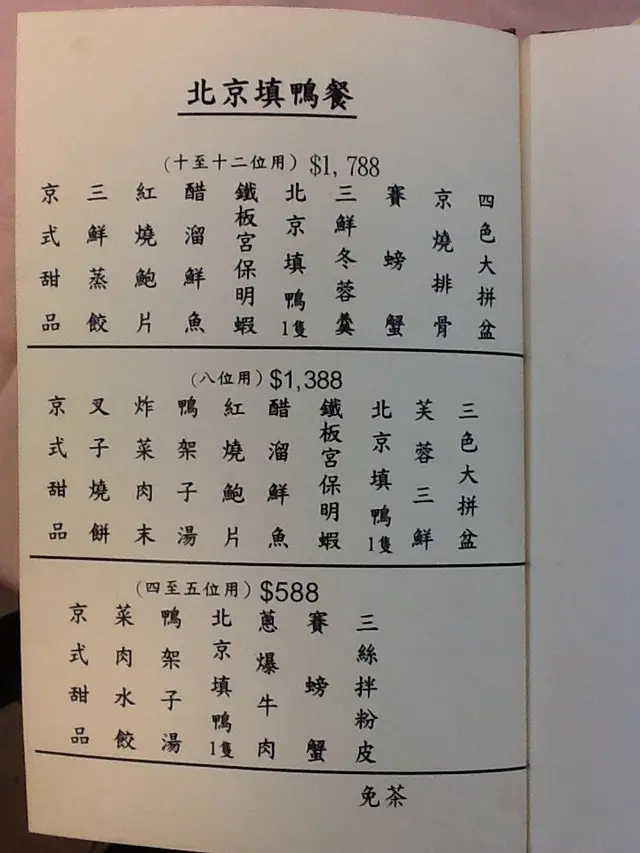 北京填鴨餐
(十至十二位用) $1,788
四色大拼盆
京燒排骨
賽螃蟹
三鮮冬蓉羹
北京填鴨1隻
鐵板宮保明蝦
醋溜鮮魚
紅燒鮑片
三鮮蒸餃
京式甜品
(八位用) $1,388
三色大拼盆
芙蓉三鮮
北京填鴨1隻
鐵板宮保明蝦
醋溜鮮魚
紅燒鮑片
鴨架子湯
炸菜肉末
叉子燒餅
京式甜品
(四至五位用) $588
三絲拌粉皮
賽螃蟹
蔥爆牛肉
北京填鴨1隻
鴨架子湯
菜肉水餃
京式甜品
免茶